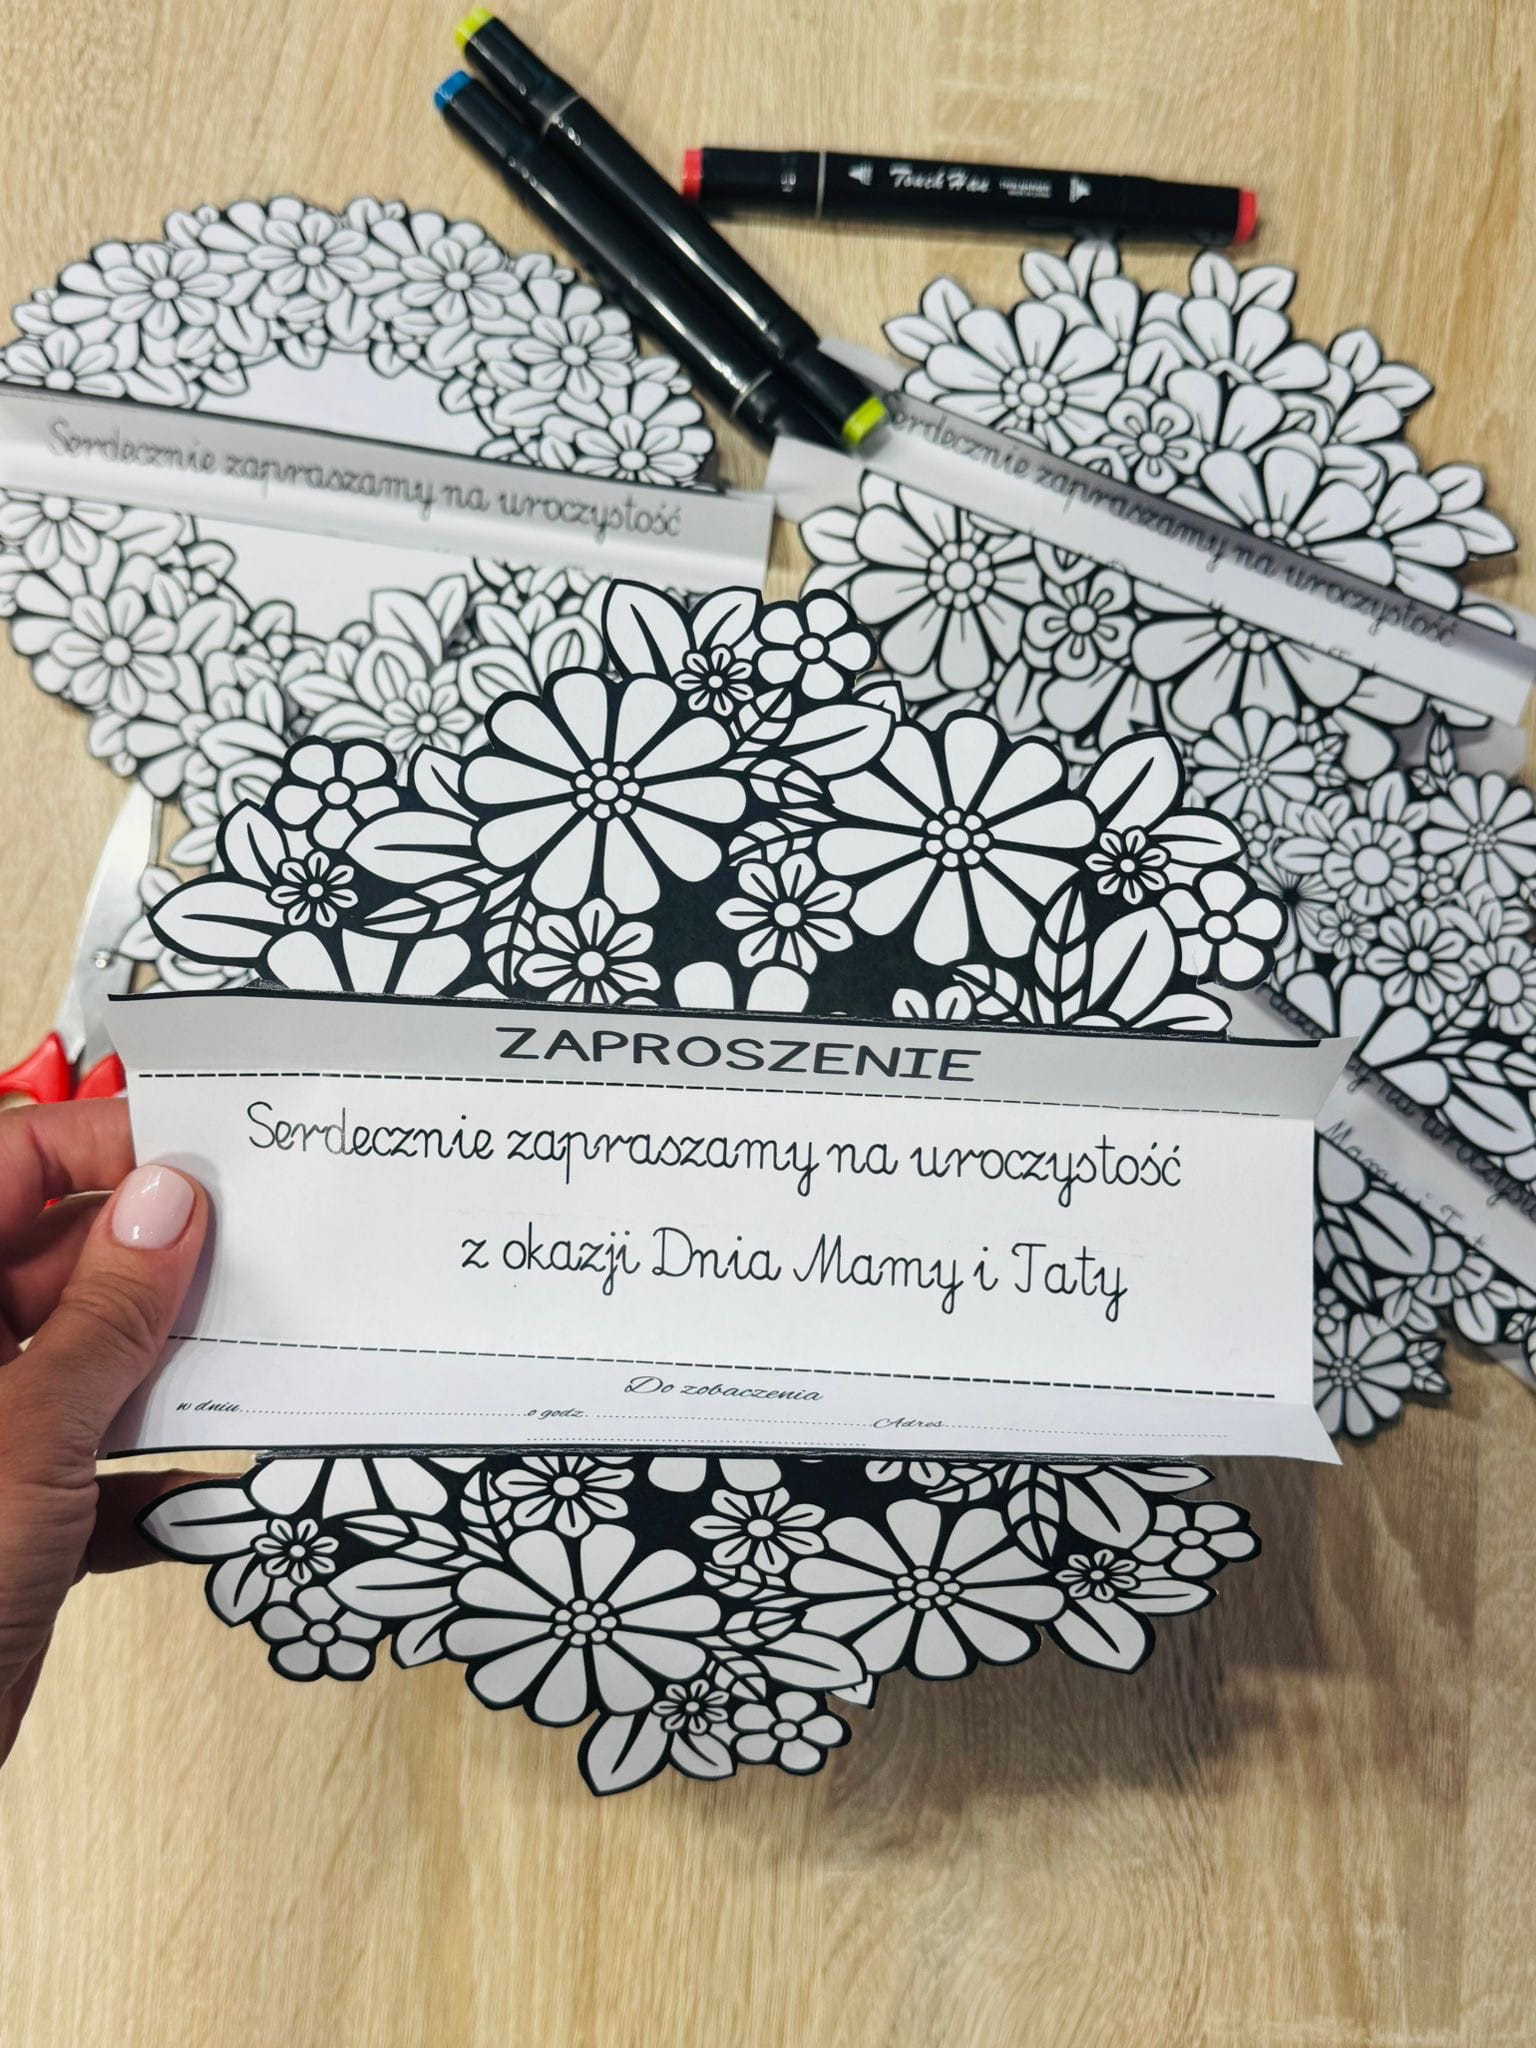 Touch
Serdecznie zapraszamy na uroczystość
Serdecznie zapraszamy na uroczystość
ZAPROSZENIE
Serdecznie zapraszamy na uroczystość
z okazji Dnia Mamy i Taty
Do zobaczenia
w dniu..............................o godz..............................Adres..............................